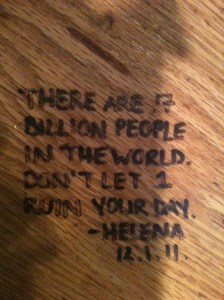 THERE ARE 7
BILLION PEOPLE
IN THE WORLD.
DON'T LET 1
RUIN YOUR DAY.
-HELENA
12.1.11.